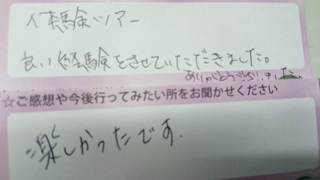 体験ツアー
良い経験をさせていただきました。
ありがとうございました
☆ご感想や今後行ってみたい所をお聞かせください
楽しかったです.